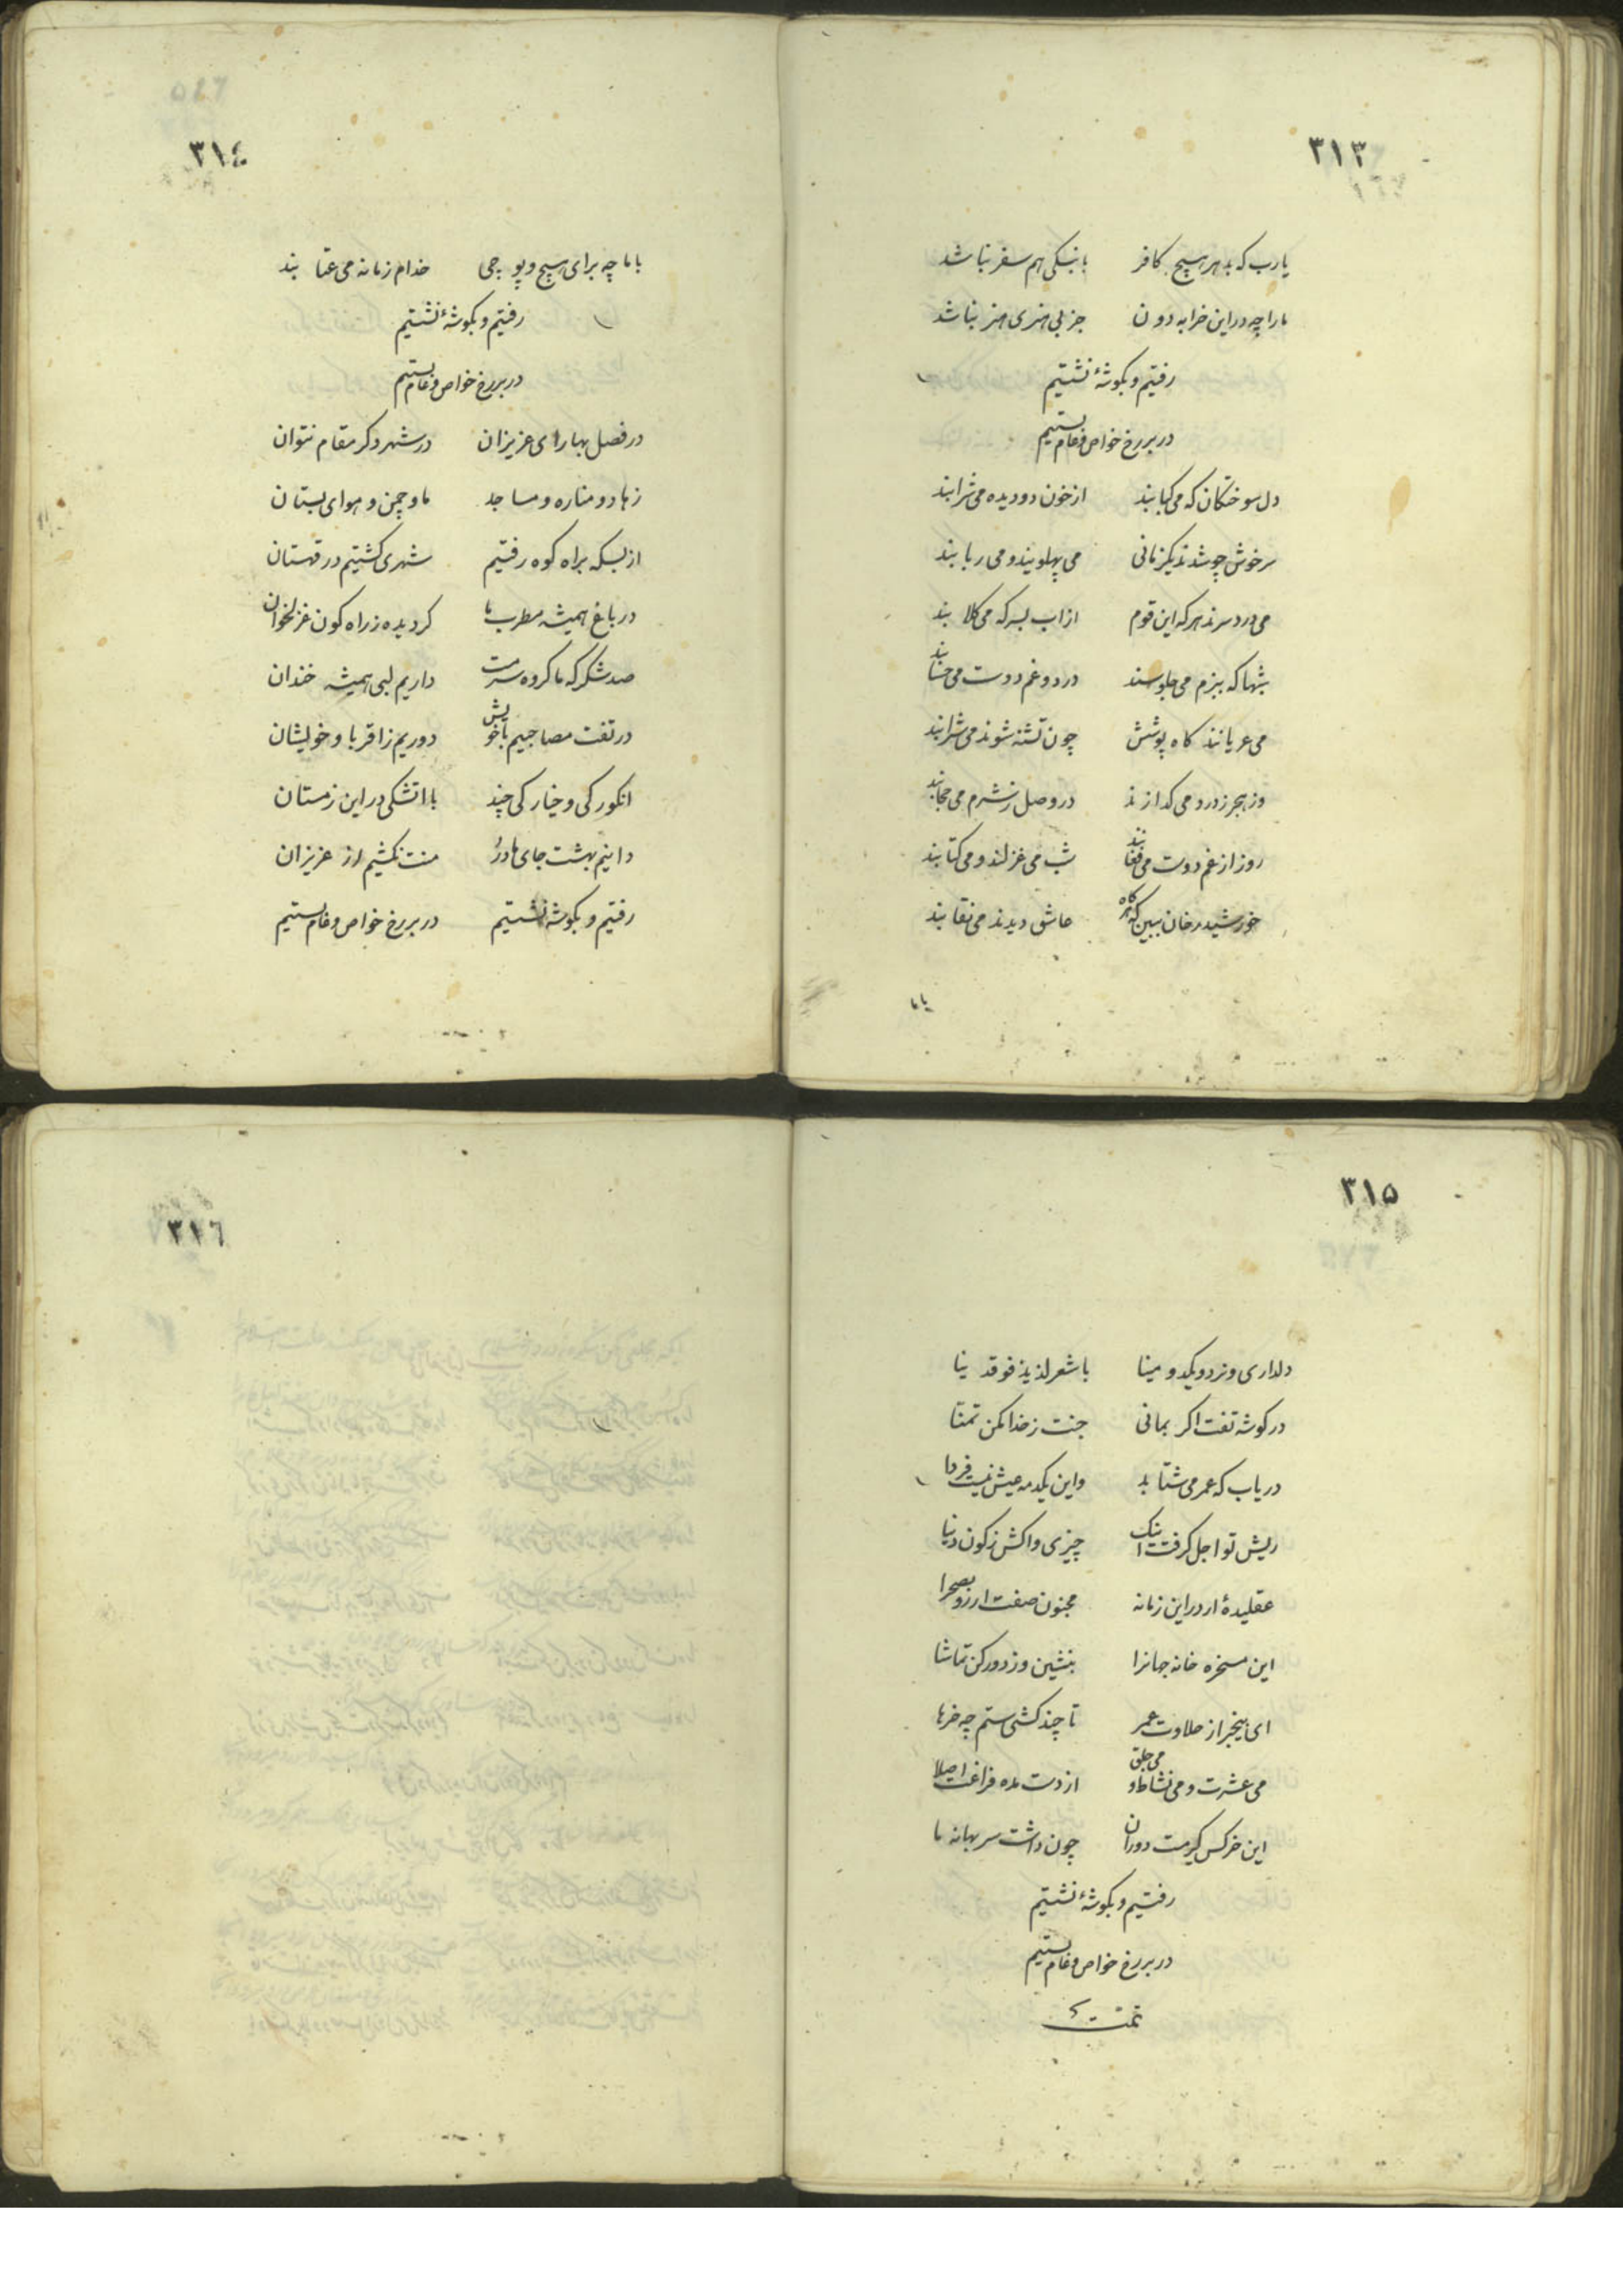 ۳۱۳
یارب که بدهر هیچ کافر بابنگی هم سفر نباشد
ما را چه در این خرابه دون جز بی هنری هنر نباشد
رفتیم و بگوشهٔ نشتیم
در بر رخ خواص و عام بستیم
دل سوختکان که می کبابند از خون دو دیده می شرابند
سرخوش چو شدند یکزمانی می پهلویند و می ربابند
می درد سرند هر که این قوم از اب بسرکه می کلابند
شبها که ببزم می جلوسند درد و غم دوست می حسابند
می عریانند کاه پوشش چون تشنه شوند می شرابند
وز هجر ز درد می کدازند در وصل ز شرم می حجابند
روز از غم دوست می فغانند شب می غزلند و می کتابند
خورشید رخان ببین که هر کاه عاشق دیدند می نقابند
باما
۳۱٤
باما چه برای هیچ و پوچی خدام زمانه می عتابند
رفتیم و بگوشهٔ نشتیم
در بر رخ خواص و عام بستیم
در فصل بهار ای عزیزان در شهر دکر مقام نتوان
زهاد و مناره و مساجد ما و چمن و هوای بستان
از بسکه براه کوه رفتیم شهری کشتیم در قهستان
در باغ همیشه مطرب ما کردیده ز راه کون غزلخوان
صد شکر که ما کروه سرمست داریم لبی همیشه خندان
در تفت مصاحبیم با خویش دوریم ز اقربا و خویشان
انکورکی و خیارکی چند با اتشکی در این زمستان
دانیم بهشت جای ما در منت نکشیم از عزیزان
رفتیم و بگوشهٔ نشتیم در بر رخ خواص و عام بستیم
۳۱۵
دلداری و نرد و یکدو مینا با شعر لذیذ فوقدینا
در کوشه تفت اکر بمانی جنت ز خدا مکن تمنا
دریاب که عمر می شتابد واین یکدمه عیش نیست فردا
ریش تو اجل کرفت اینک چیزی واکش ز کون دنیا
عقلیدهٔ ار در این زمانه مجنون صفت ار زو بصحرا
این مسخره خانه جهانرا بنشین و ز دور کن تماشا
ای بیخبر از حلاوت عمر تا چند کشی ستم چه خرها
می عشرت و می نشاط و می جلق از دست مده فراغت اصلا
این خرکس کیرمست دوران چون داشت سر بهانه ما
رفتیم و بگوشهٔ نشتیم
در بر رخ خواص و عام بستیم
تمت
۳۱٦